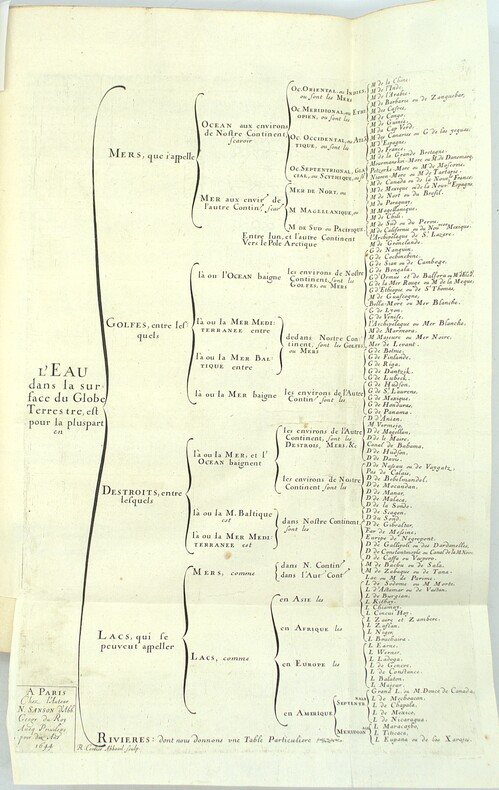 L'EAU
dans la sur-
face du Globe
Terrestre, est
pour la pluspart
en
MERS, que j'appelle
OCEAN aux environs
de Nostre Continent
scavoir
OC. ORIENTAL, ou INDIEN,
ou sont les MERS
M de la Chine.
M de l'Inde.
M de l'Arabie.
OC. MERIDIONAL, ou ETHI
OPIEN, ou sont les
M de Barbarie ou de Zanguebar.
M des Cafres.
M de Congo.
M de Guinée.
OC. OCCIDENTAL, ou ATLAN
TIQUE, ou sont les
M du Cap Verd.
M des Canaries ou G de las yeguas.
M d'Espagne.
M de France.
M de la Grande Bretagne.
OC. SEPTENTRIONAL, GLA
CIAL, ou SCYTHIQUE, ou sont
Mourmanskoi More ou M de Danemarq.
Petzorke More ou M de Moscovie.
Niaren More ou M de Tartarie.
MER aux envir.ˢ de
l'autre Contin.ᵗ scav.ʳ
MER DE NORT, ou
M de Canada ou de la Nou.ˡᵉ France.
M de Mexique ou de la Nou.ˡᵉ Espagne
M de Nort ou du Bresil.
M de Paraguay.
M MAGELLANIQUE, ou
M Magellanique.
M de Chili.
M DE SUD ou PACIFIQUE,
M de Sud ou du Perou.
M de Californie ou du Nou.ᵛᵉᵃᵘ Mexique.
l'Archipelague de S.ᵗ Lazare.
Entre l'un, et l'autre Continent
Vers le Pole Arctique
M de Groenlande.
GOLFES, entre les
quels
là ou l'OCEAN baigne
les environs de Nostre
Continent, sont les
GOLFES, ou MERS
G de Nanquin.
G de Cochinchine.
G de Sian ou de Camboge.
G de Bengala.
G d'Ormus et de Balsora ou M d'El Catif.
G de la Mer Rouge ou M de la Meque.
G d'Ethiopie ou de S.ᵗ Thomas.
M de Guascogne.
Bella More ou Mer Blanche.
là ou la MER MEDI
TERRANEE entre
là ou la MER BAL
TIQUE entre
dedans Nostre Con-
tinent, sont les GOLFES
ou MERS
G de Lyon.
G de Venise.
l'Archipelague ou Mer Blanche.
M de Marmora.
M Majeure ou Mer Noire.
Mer de Levant.
G de Botne.
G de Finlande.
G de Riga.
G de Dantzick.
G de Lubeck.
là ou la MER baigne
les environs de l'Autre
Contin.ᵗ sont les
G de Hudson.
G de S.ᵗ Laurens.
G de Mexique.
G de Honduras.
G de Panama.
M Vermejo.
DESTROITS, entre
lesquels
là ou la MER, et l'
OCEAN baignent
les environs de l'Autre
Continent, sont les
DESTROIS, MERS, &c
D d'Anian.
D de Magellan.
D de le Maire.
Canal de Bahama.
D de Hudson.
D de Davis.
les environs de Nostre
Continent sont les
D de Nassau ou de Vaygatz.
Pas de Calais.
D de Babelmandel.
D de Mocandan.
D de Manar.
D de Malaca.
D de la Sonde.
là ou la M. BALTIQUE
est
là ou la MER MEDI
TERRANEE est
dans Nostre Continent
sont les
D de Scagen.
D du Sond.
D de Gibraltar.
Far de Messine.
Euripe de Negrepont.
D de Gallipoli ou des Dardanelles.
D de Constantinople ou Canal de la M. Noire.
D de Caffa ou Vospero.
LACS, qui se
peuvent appeller
MERS, comme
dans N. Contin.ᵗ
dans l'Aut.ʳ Cont
M de Bachu ou de Sala.
M de Zabaque ou de Tana.
Lac ou M de Parime.
LACS, comme
en ASIE les
L de Sodome ou M Morte.
L d'Astamar ou de Vastan.
L de Burgian.
L Kithay.
L Chiamay.
L Cincui Hay.
en AFRIQUE les
L Zaire et Zambere.
L Zaflan.
L Niger.
L Bouchaira.
en EUROPE les
L Earne.
L Werner.
L Ladoga.
L de Geneve.
L de Constance.
L Balaton.
L Majeur.
en AMERIQUE
SEPTENTR
Grand L. ou M. Douce de Canada.
L de Mechoacan.
L de Chapala.
L de Mexico.
L de Nicaragua.
MERIDION
L Maracaybo.
L Titicaca.
L Eupana ou de los Xarajes.
RIVIERES: dont nous donnons une Table Particuliere
A PARIS
Chez l'Auteur
N. SANSON d'Abb
Geogr du Roy
Avecq Privilege
pour dix Ans
1644
R. Cordier Abbavil sculp.